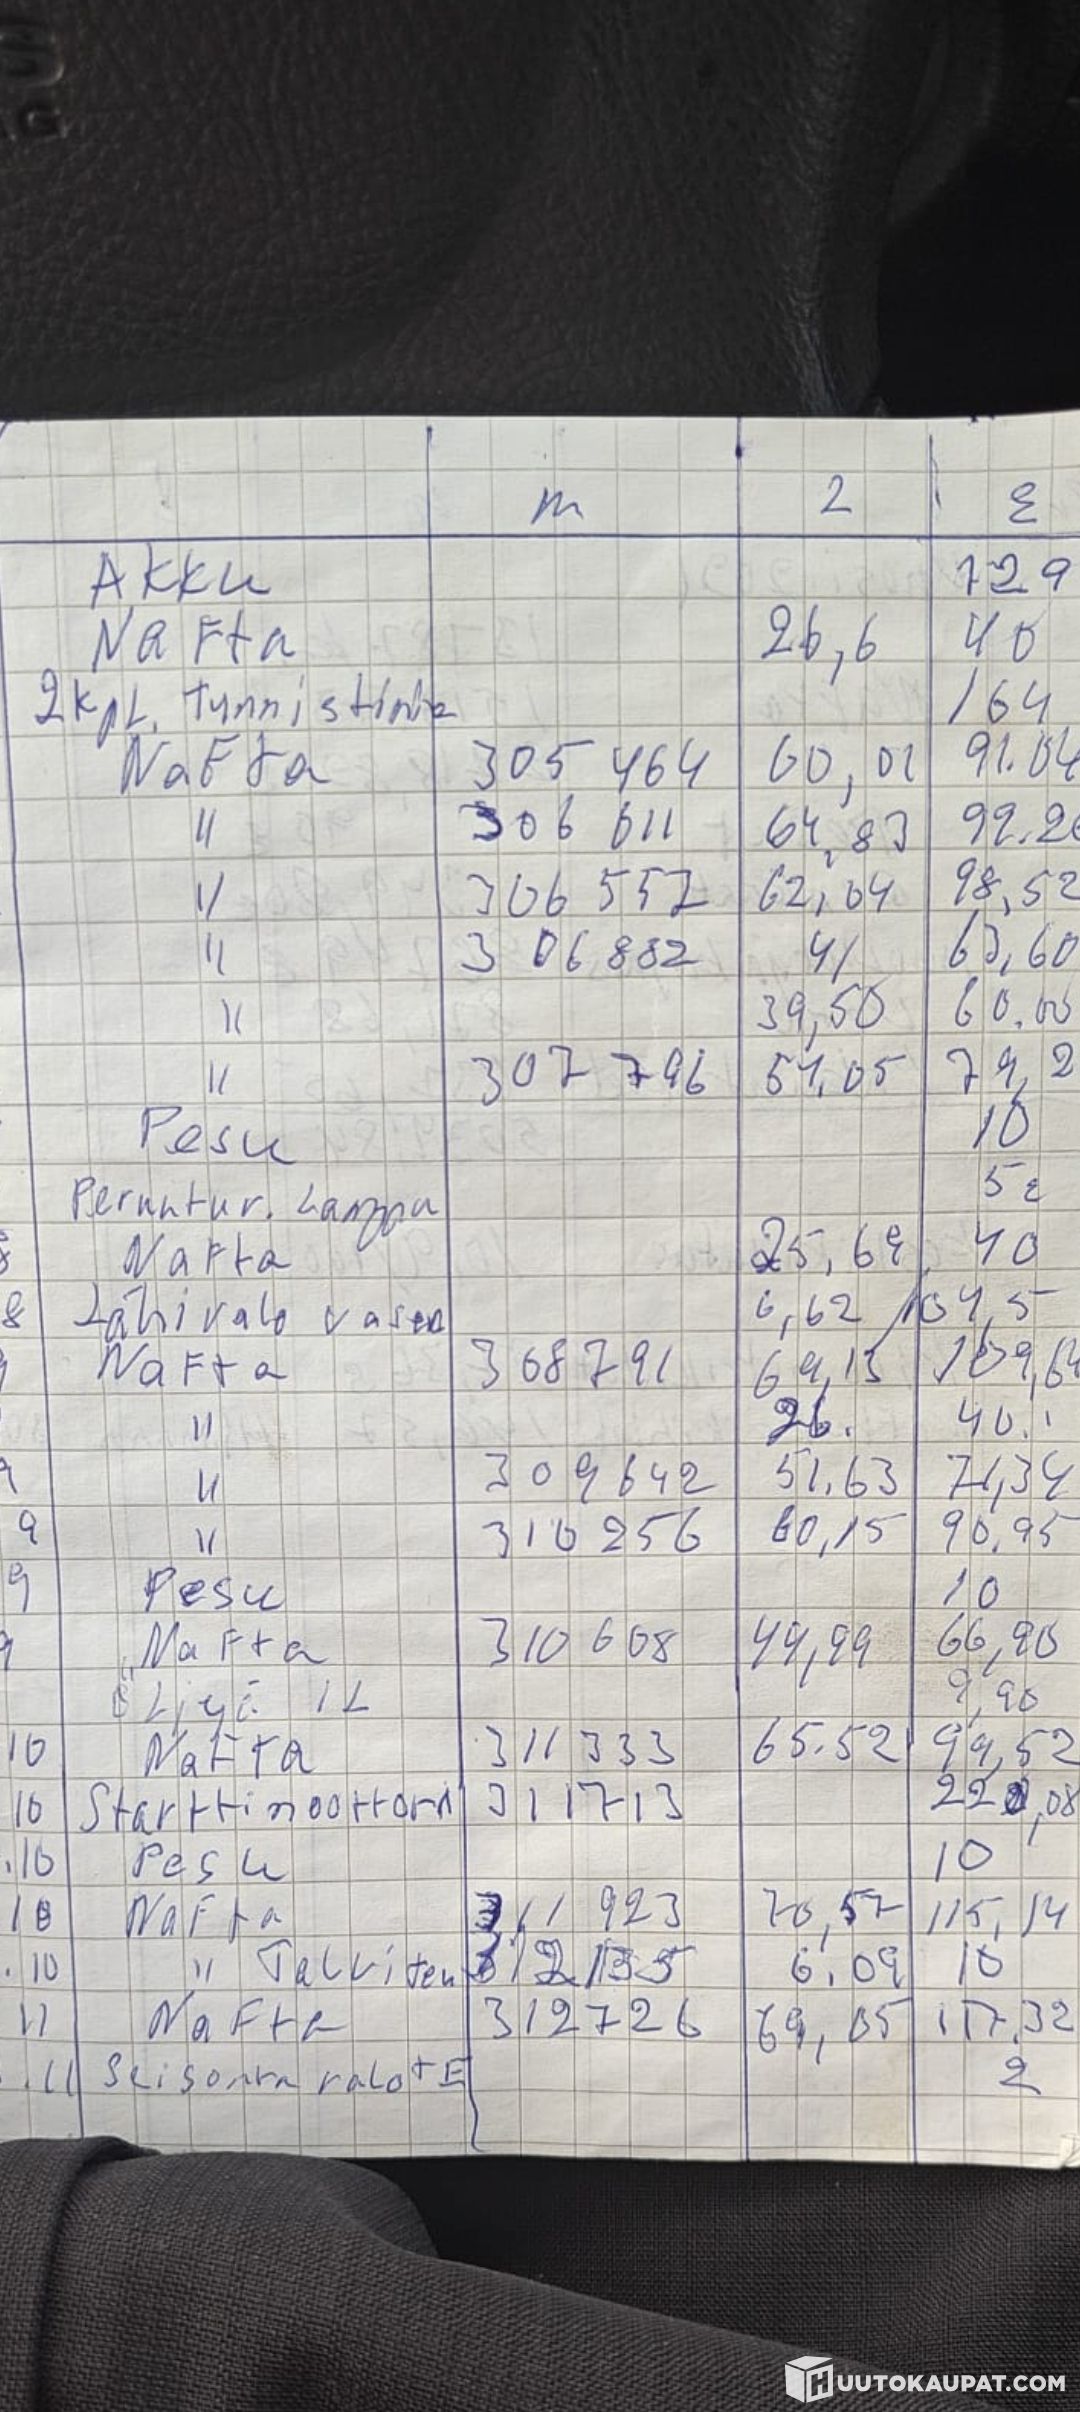 AG
m 2 €
Akku 129
Nafta 26,6 40
2kpl. tunnistinta 164
Nafta 305 464 60,01 91.04
" 306 011 64,83 99.26
" 306 557 62,04 98,52
" 306882 41 63,60
" 39,50 60.00
" 307 796 51,05 79,2
Pesu 10
Peruutur. Lamppu 5€
Nafta 25,69 40
8 Lähivalo vasen 6,62
Nafta 308791 69,13 109,64
" 26. 40.
9 " 309642 51,63
9 " 310256 60,15 90,95
9 Pesu 10
9 Nafta 310 608 44,99 66,90
Öljyä 1L 9,90
10 Nafta 311 333 65.52 99,52
10 Starttimoottori 311713 ,08
.10 Pesu 10
10 Nafta 311 923 70,57 115,14
.10 " 6.09 10
11 Nafta 312726 69,05 117,32
.11 Seisonta valo 2
HUUTOKAUPAT.COM